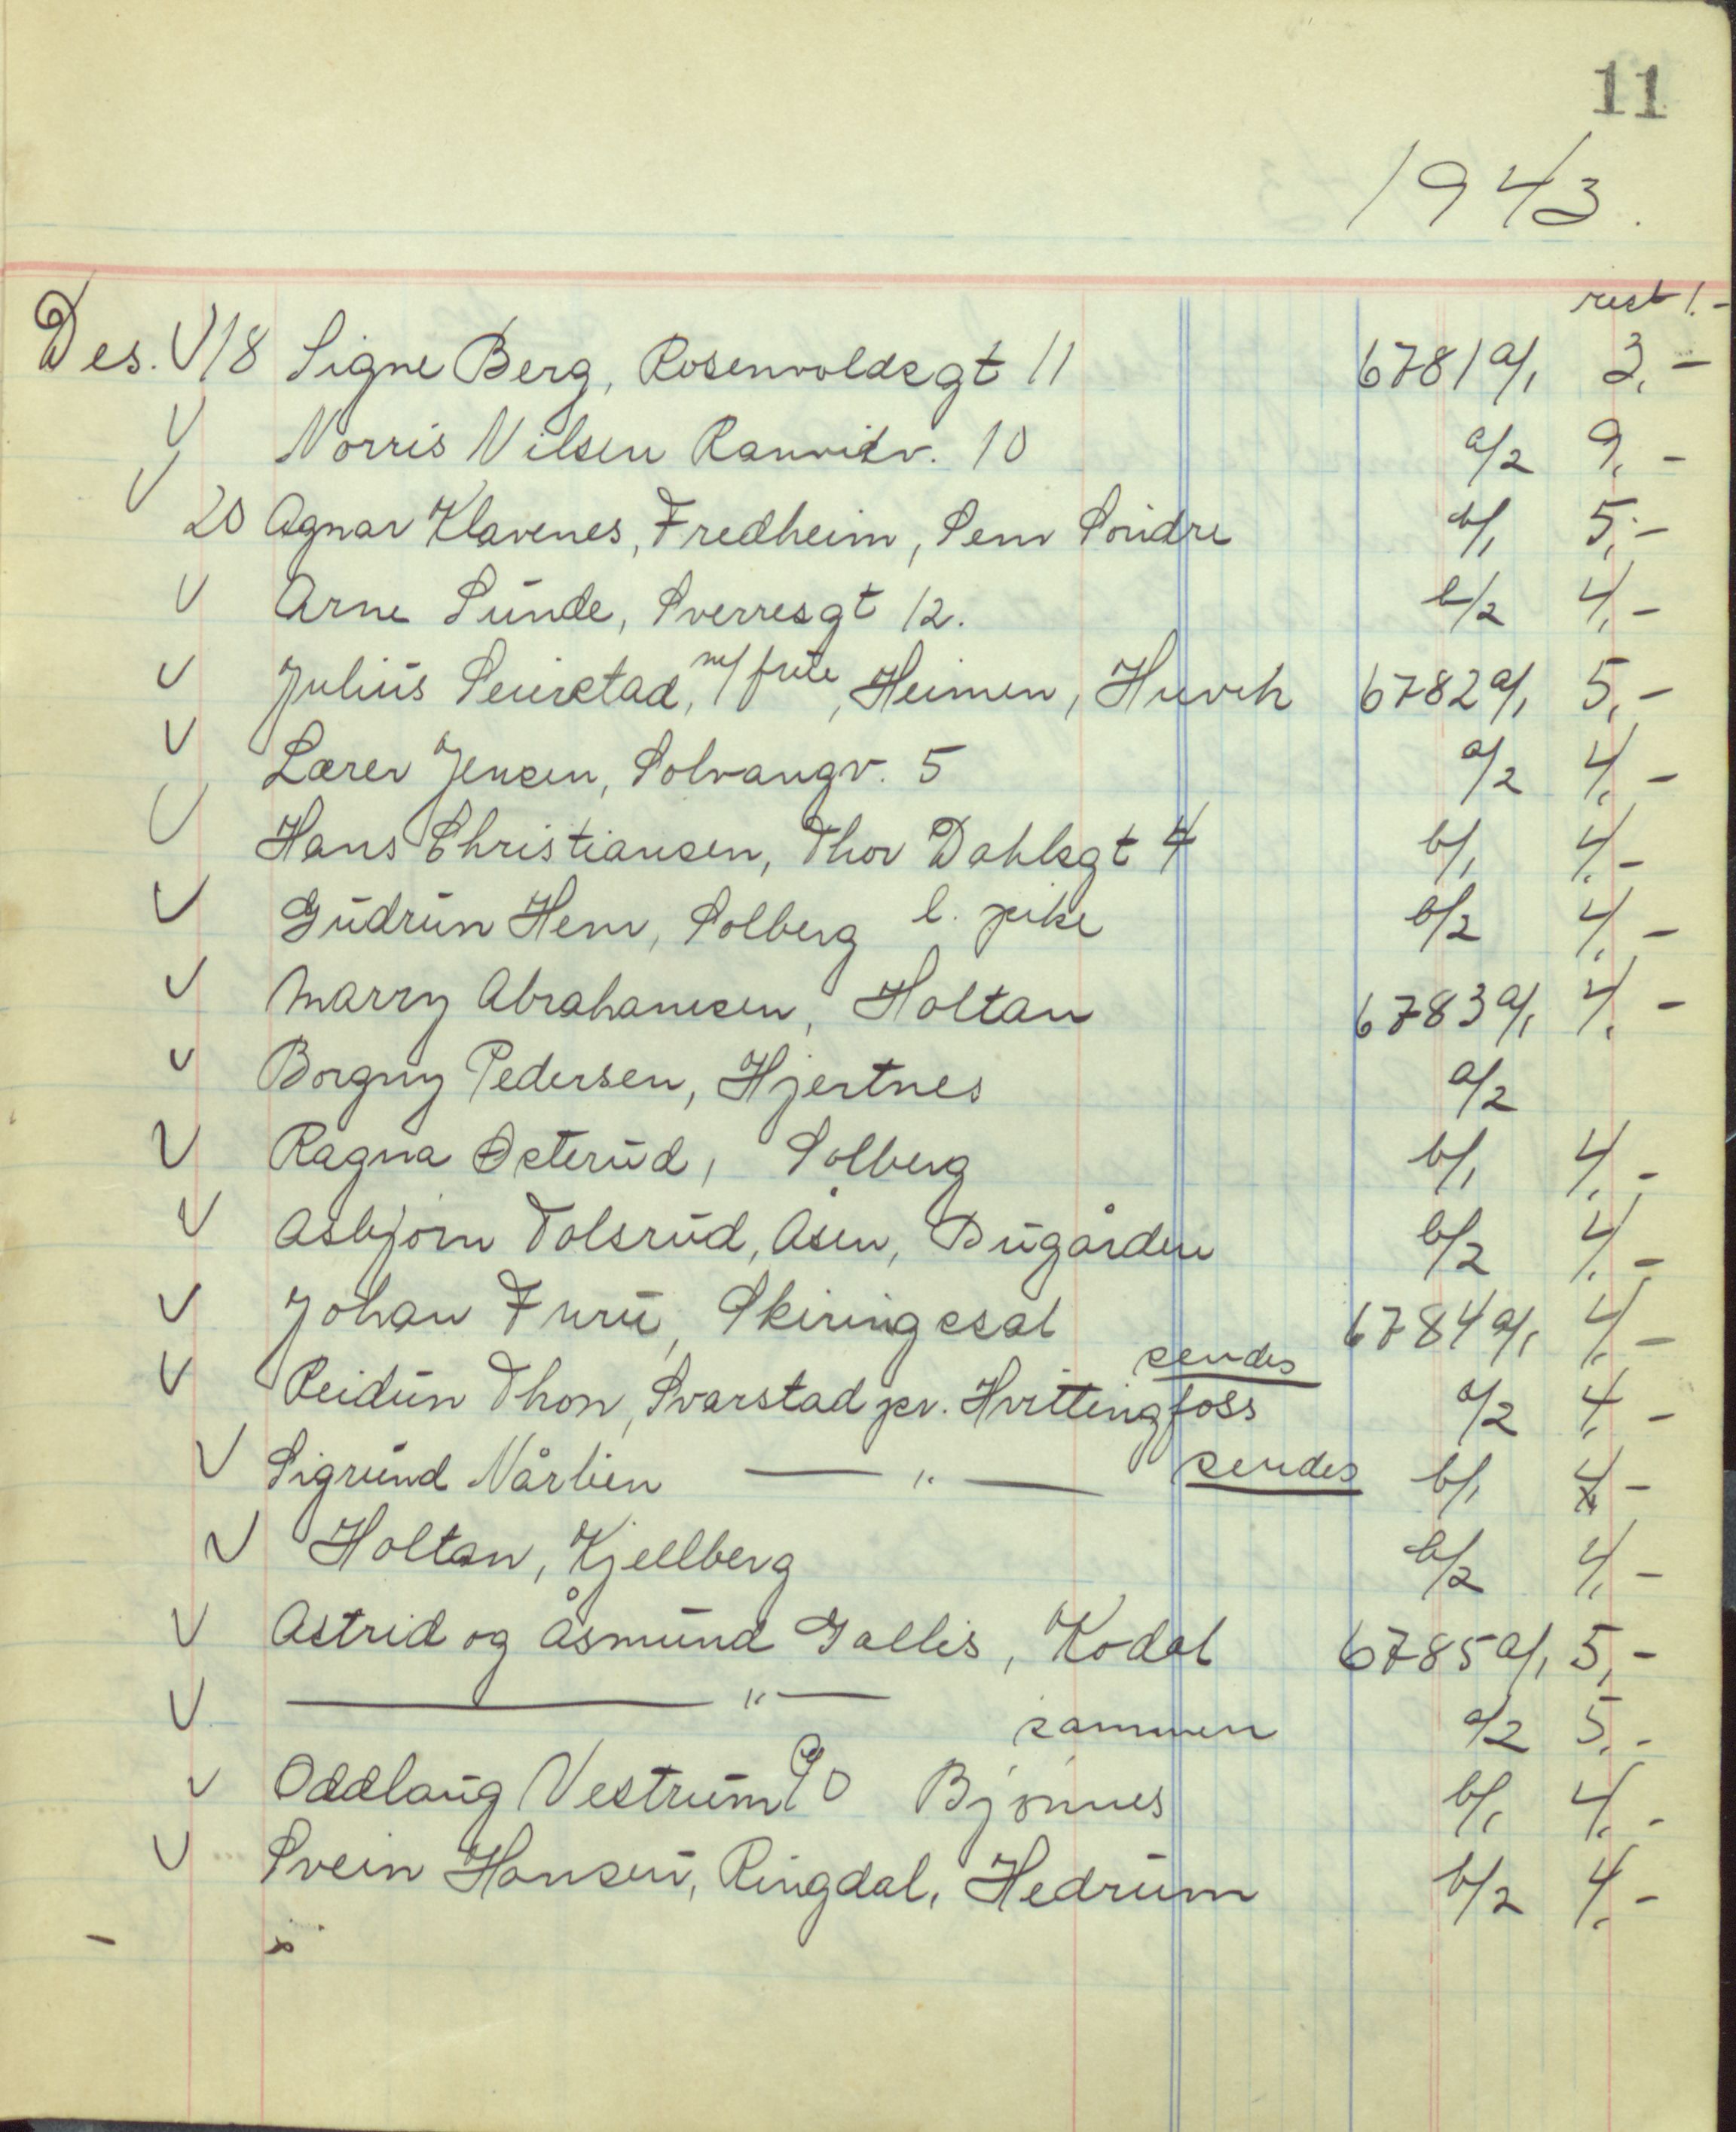 11
1943.
rest 1.-
Des. V 18 Signe Berg, Rosenvoldsgt 11 6781 a/1 3,-
V Norris Nilsen Ranvidv. 10 a/2 9,-
V 20 Agnar Klavenes, Fredheim, Sem Søndre b/1 5,-
V Arne Sunde, Sverresgt 12. b/2 4,-
V Julius Seierstad, m/frue, Heimen, Huvik 6782 a/1 5,-
V Lærer Jensen, Solvangv. 5 a/2 4,-
V Hans Christiansen, Thor Dahlsgt 4 b/1 4,-
V Gudrun Hem, Solberg l. pike b/2 4,-
V Marry Abrahamsen, Holtan 6783 a/1 4,-
V Borgny Pedersen, Hjertnes a/2
V Ragna Østerud, Solberg b/1 4,-
V Asbjørn Tolsrud, Åsen, Bugården b/2 4,-
V Johan Furu, Skiringssal 6784 a/1 4,-
sendes
V Reidun Thon, Svarstad pr. Hvittingfoss a/2 4,-
V Sigrund Nårlien — " — sendes b/1 4,-
V Holtan, Kjellberg b/2 4,-
V Astrid og Åsmund Gallis, Kodal 6785 a/1 5,-
V — " — sammen a/2 5,-
V Oddlaug Vestrum Bjønnes b/1 4,-
V Svein Hansen, Ringdal, Hedrum b/2 4,-